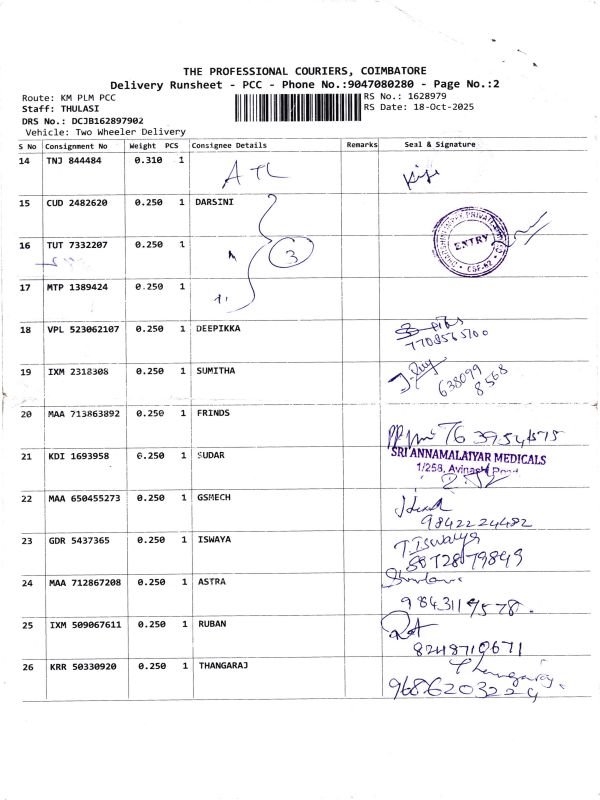 THE PROFESSIONAL COURIERS, COIMBATORE
Delivery Runsheet - PCC - Phone No.:9047080280 - Page No.:2
Route: KM PLM PCC
Staff: THULASI
DRS No.: DCJB162897902
Vehicle: Two Wheeler Delivery
RS No.: 1628979
RS Date: 18-Oct-2025
S No Consignment No Weight PCS Consignee Details Remarks Seal & Signature
14 TNJ 844484 0.310 1 ATL
15 CUD 2482620 0.250 1 DARSINI
16 TUT 7332207 0.250 1 3 ENTRY
17 MTP 1389424 0.250 1
18 VPL 523062107 0.250 1 DEEPIKKA
7708565700
19 IXM 2318308 0.250 1 SUMITHA
638099
8568
20 MAA 713863892 0.250 1 FRINDS
21 KDI 1693958 0.250 1 SUDAR
SRI ANNAMALAIYAR MEDICALS
1/258, Avinashi Road
22 MAA 650455273 0.250 1 GSMECH
9842224482
23 GDR 5437365 0.250 1 ISWAYA
T. Iswarya
24 MAA 712867208 0.250 1 ASTRA
9843119578.
25 IXM 509067611 0.250 1 RUBAN
8248710671
26 KRR 50330920 0.250 1 THANGARAJ
Thangaraj.
9686203224